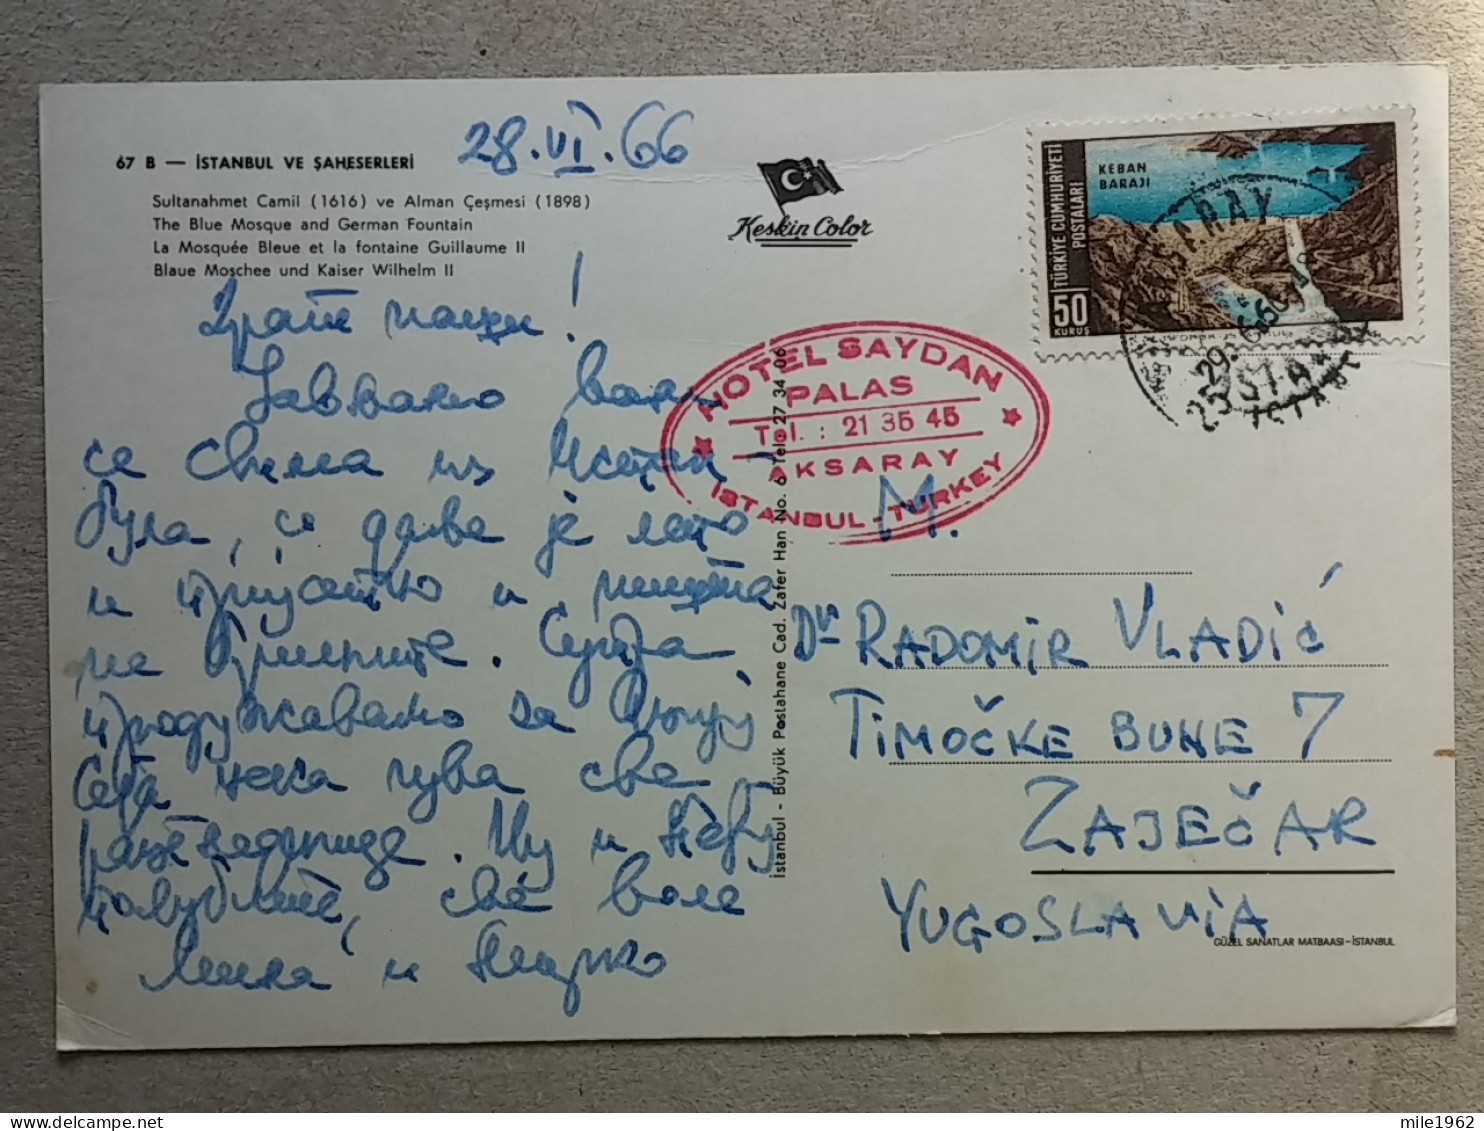 67 B — İSTANBUL VE ŞAHESERLERİ
28.VI.66
Sultanahmet Camii (1616) ve Alman Çeşmesi (1898)
The Blue Mosque and German Fountain
La Mosquée Bleue et la fontaine Guillaume II
Blaue Moschee und Kaiser Wilhelm II
Keskin Color
TÜRKİYE CUMHURİYETİ
POSTALARI
KEBAN
BARAJI
50
KURUŞ
29.6.66
HOTEL SAYDAN
PALAS
Tel. : 21 35 45
AKSARAY
İSTANBUL - TURKEY
Драги наши!
Јављамо вам
се свима из Истан
була, где је лето
и пријатно и ништа
не брините. Сутра
продужавамо за
Сека нека чува све
разгледнице. Њу и Небу
пољубите, све воле
Лила и
İstanbul - Büyük Postahane Cad. Zafer Han No. 6 Tel. 27 34 06
M.
Dr RADOMIR VLADIĆ
TIMOČKE BUNE 7
ZAJEČAR
YUGOSLAVIA
GÜZEL SANATLAR MATBAASI - İSTANBUL
mile1962